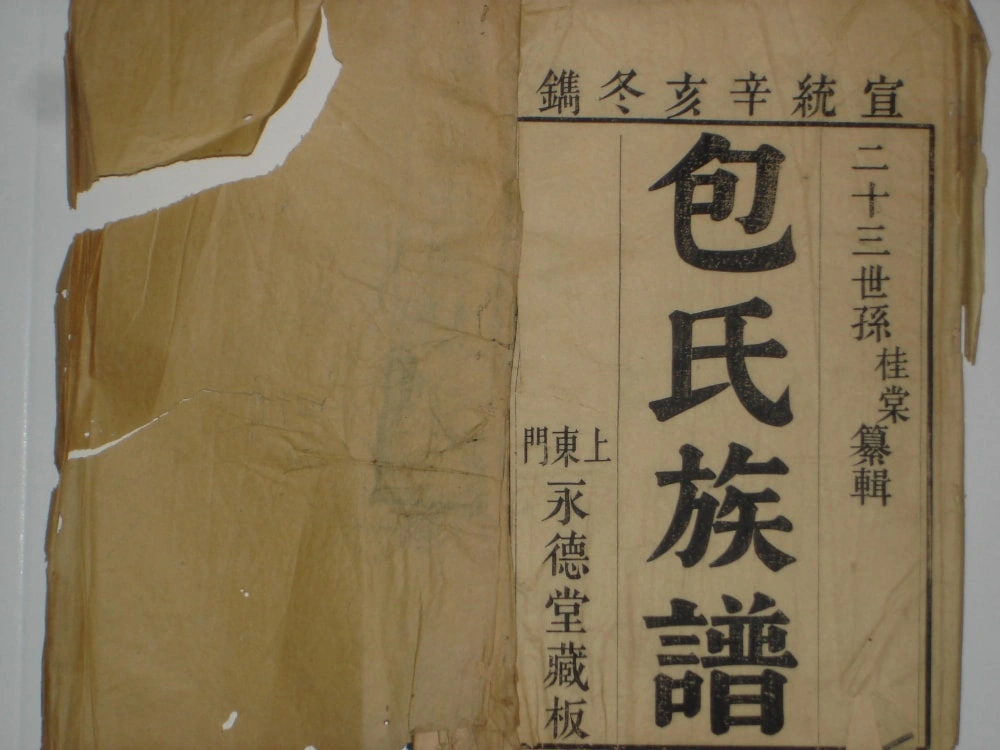 宣統辛亥冬鐫
二十三世孫桂棠纂輯
包氏族譜
上東門
永德堂藏板